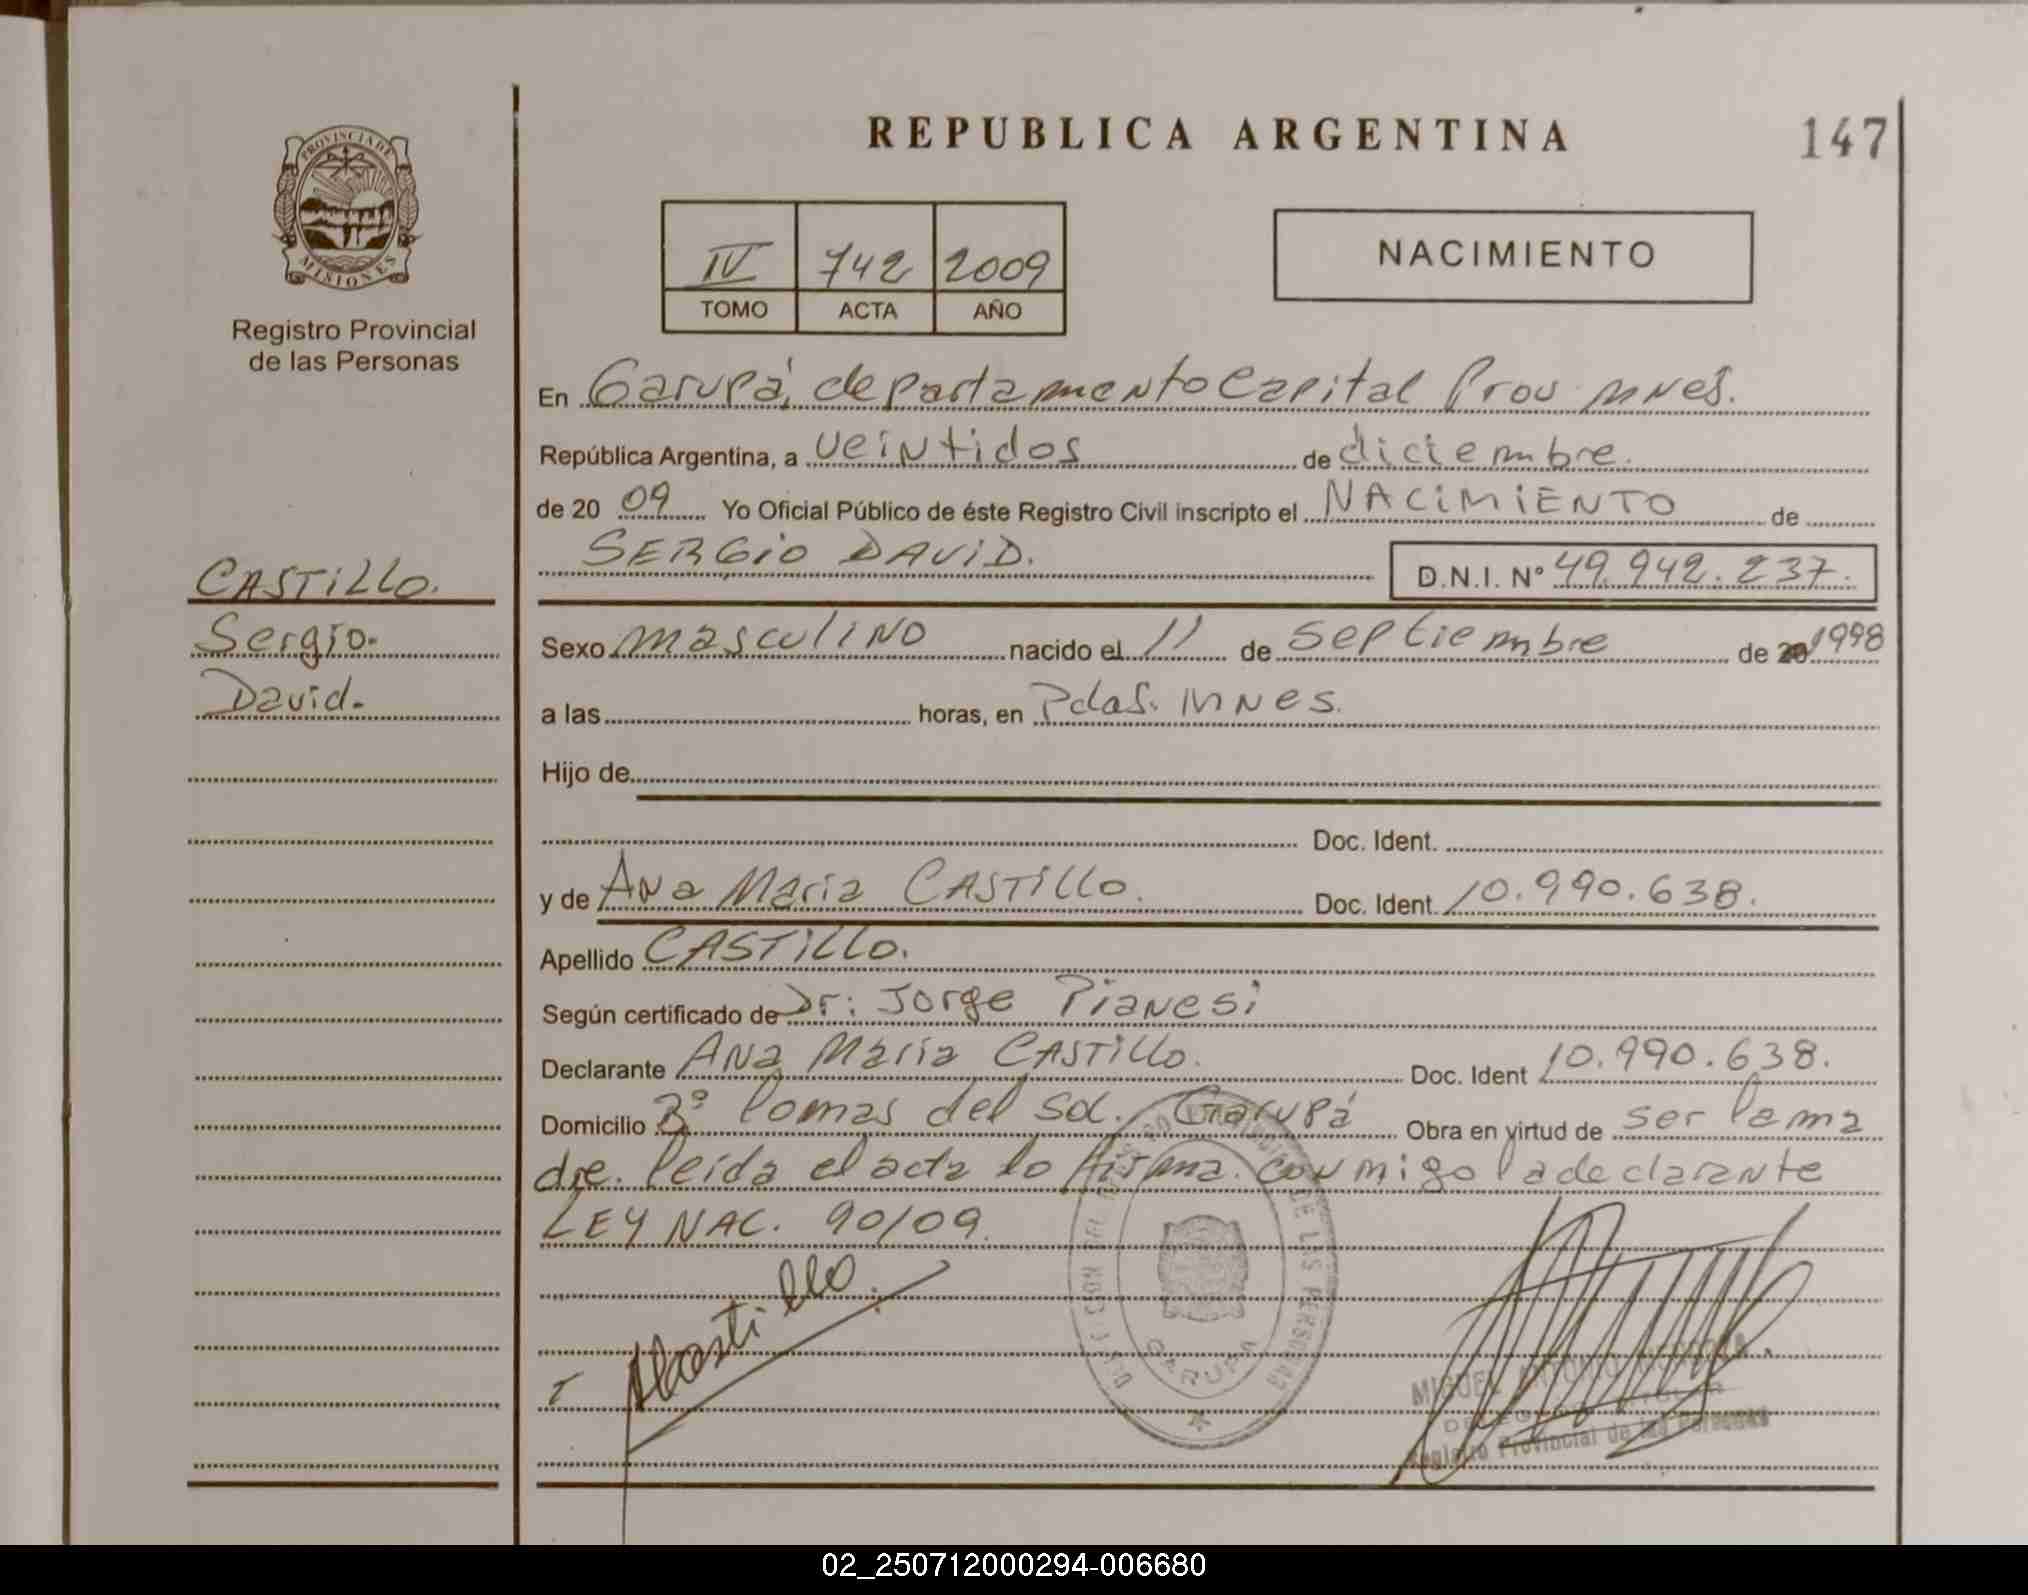 REPUBLICA ARGENTINA
147
PROVINCIA DE
MISIONES
Registro Provincial
de las Personas
IV 742 2009
TOMO ACTA AÑO
NACIMIENTO
En Garupá, departamento Capital Prov. Mnes.
República Argentina, a veintidos de diciembre.
de 20 09 Yo Oficial Público de éste Registro Civil inscripto el NACIMIENTO de
SERGIO DAVID. D.N.I. N° 49.942.237.
CASTILLO.
Sergio.
David.
Sexo masculino nacido el 11 de septiembre de 1998
a las horas, en Pdas. Mnes.
Hijo de
Doc. Ident.
y de Ana Maria CASTILLO. Doc. Ident. 10.990.638.
Apellido CASTILLO.
Según certificado de Dr: Jorge Pianesi
Declarante Ana Maria CASTILLO. Doc. Ident 10.990.638.
Domicilio Bº lomas del sol. Garupá Obra en virtud de ser la ma
dre. leida el acta lo firma conmigo la declarante
LEY NAC. 90/09.
ACastillo.
DE LAS PERSONAS
GARUPA
MIGUEL ANTONIO
Registro Provincial de las Personas
02_250712000294-006680